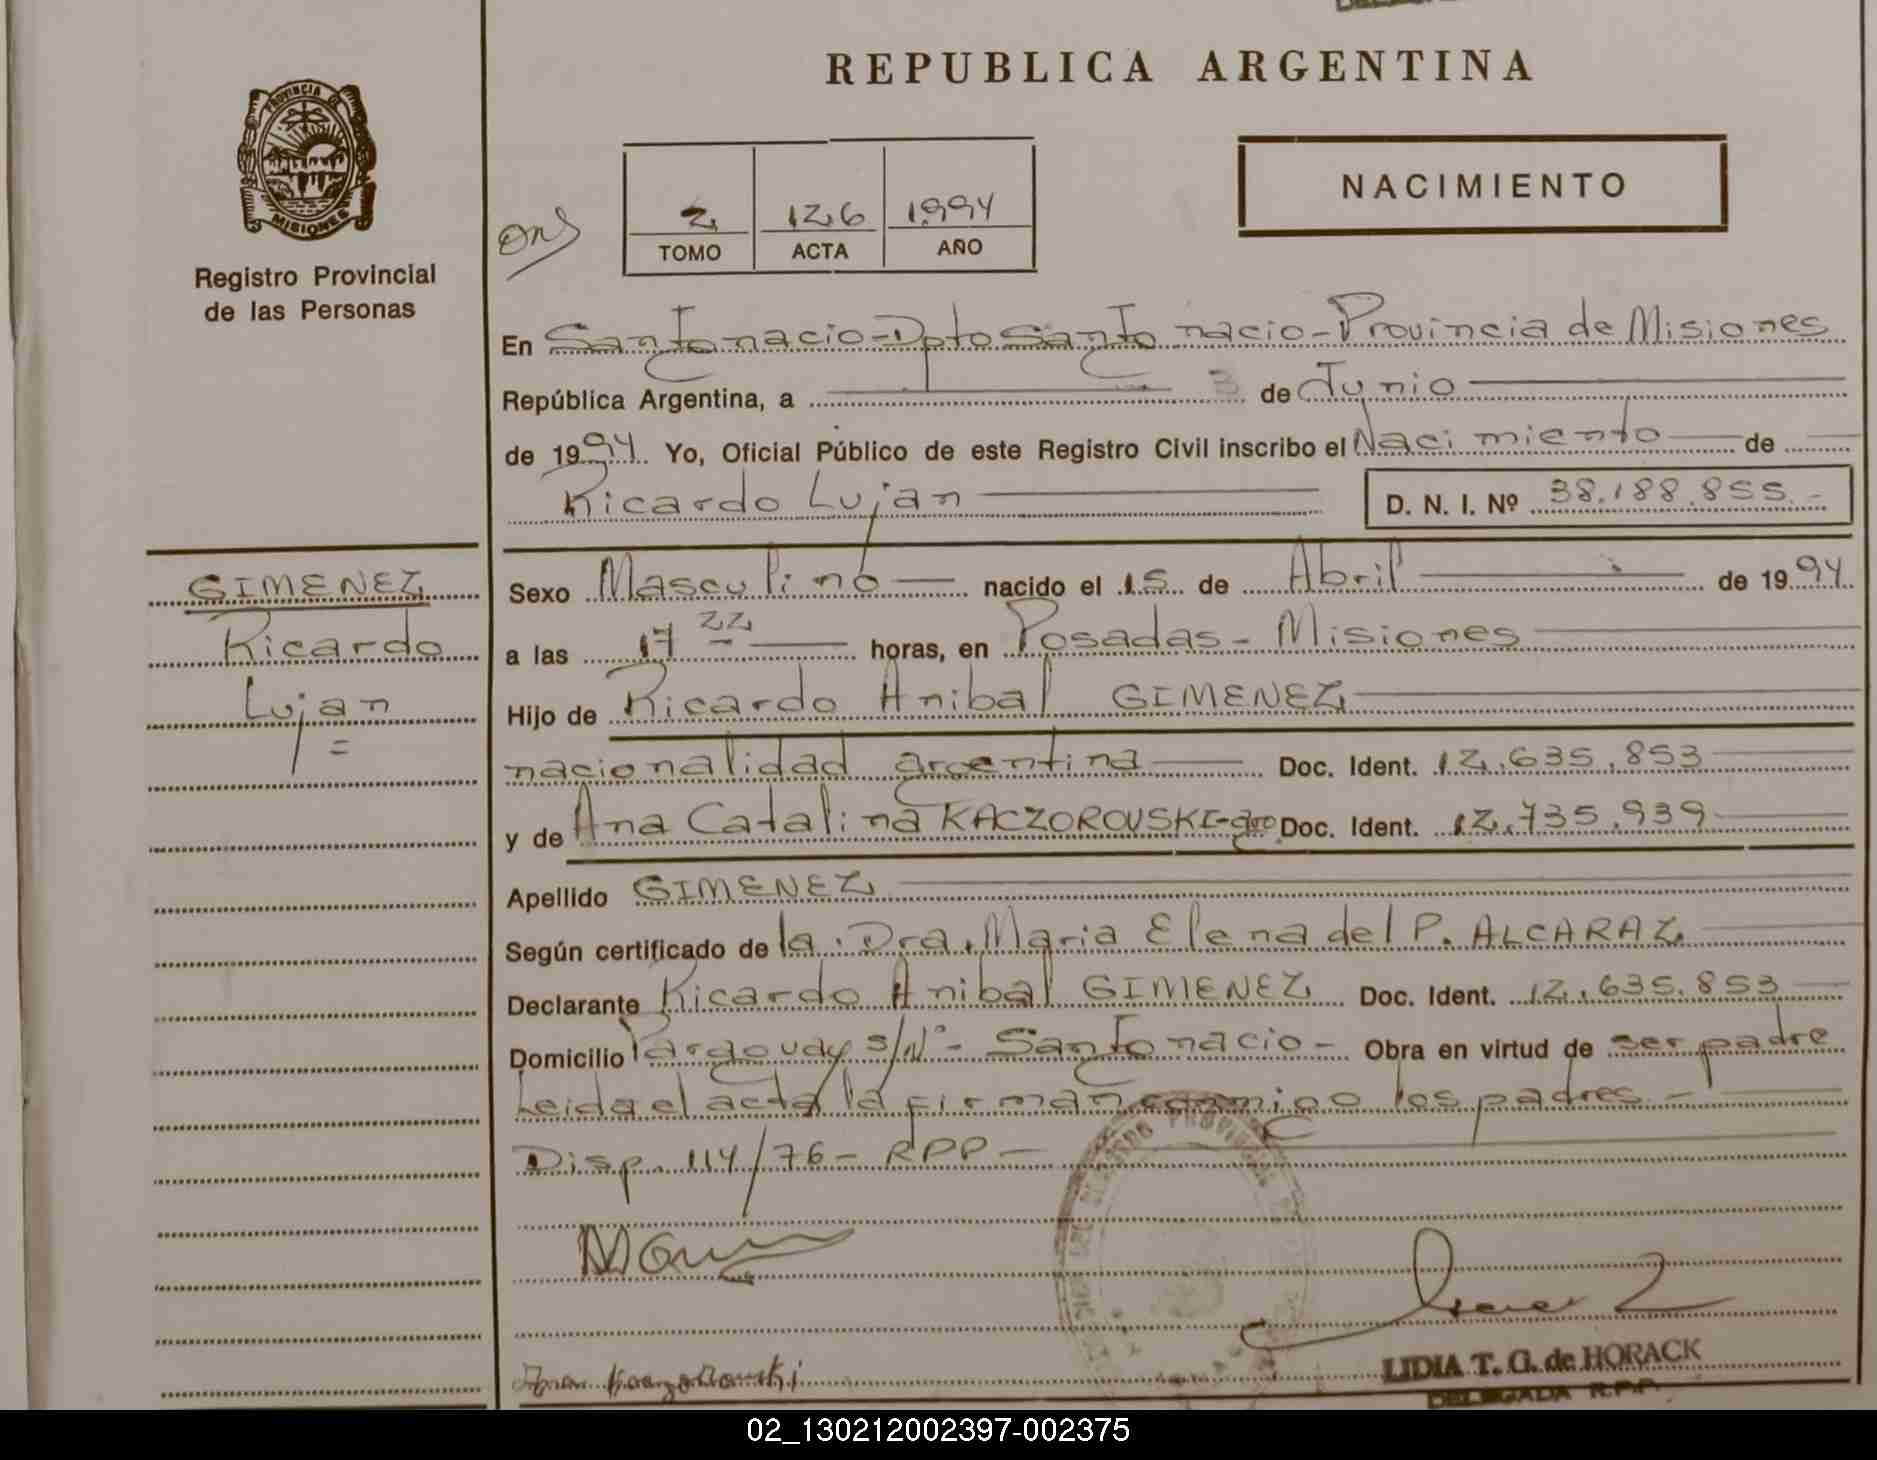 REPUBLICA ARGENTINA
PROVINCIA DE
MISIONES
Registro Provincial
de las Personas
2 126 1994
TOMO ACTA AÑO
NACIMIENTO
En San Ignacio - Dpto San Ignacio - Provincia de Misiones
República Argentina, a 3 de Junio
de 1994. Yo, Oficial Público de este Registro Civil inscribo el Nacimiento de
Ricardo Lujan D. N. I. Nº 38.188.855.-
GIMENEZ
Ricardo
Lujan
=
Sexo Masculino nacido el 15 de Abril de 1994
a las 17 22 horas, en Posadas - Misiones
Hijo de Ricardo Anibal GIMENEZ
nacionalidad argentina Doc. Ident. 12.635.853
y de Ana Catalina KACZOROVSKI - Doc. Ident. 12.735.939
Apellido GIMENEZ
Según certificado de la Dra. Maria Elena del P. ALCARAZ
Declarante Ricardo Anibal GIMENEZ Doc. Ident. 12.635.853
Domicilio Paraguay s/Nº - San Ignacio - Obra en virtud de ser padre
Leida el acta la firman conmigo los padres.-
Disp. 114/76 - RPP -
LIDIA T. G. de HORACK
DELEGADA R.P.P.
02_130212002397-002375